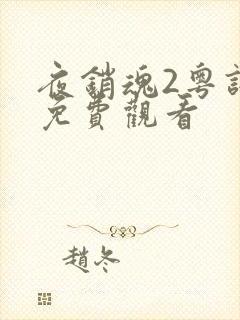 夜銷魂2粵語
免費觀看
趙冬